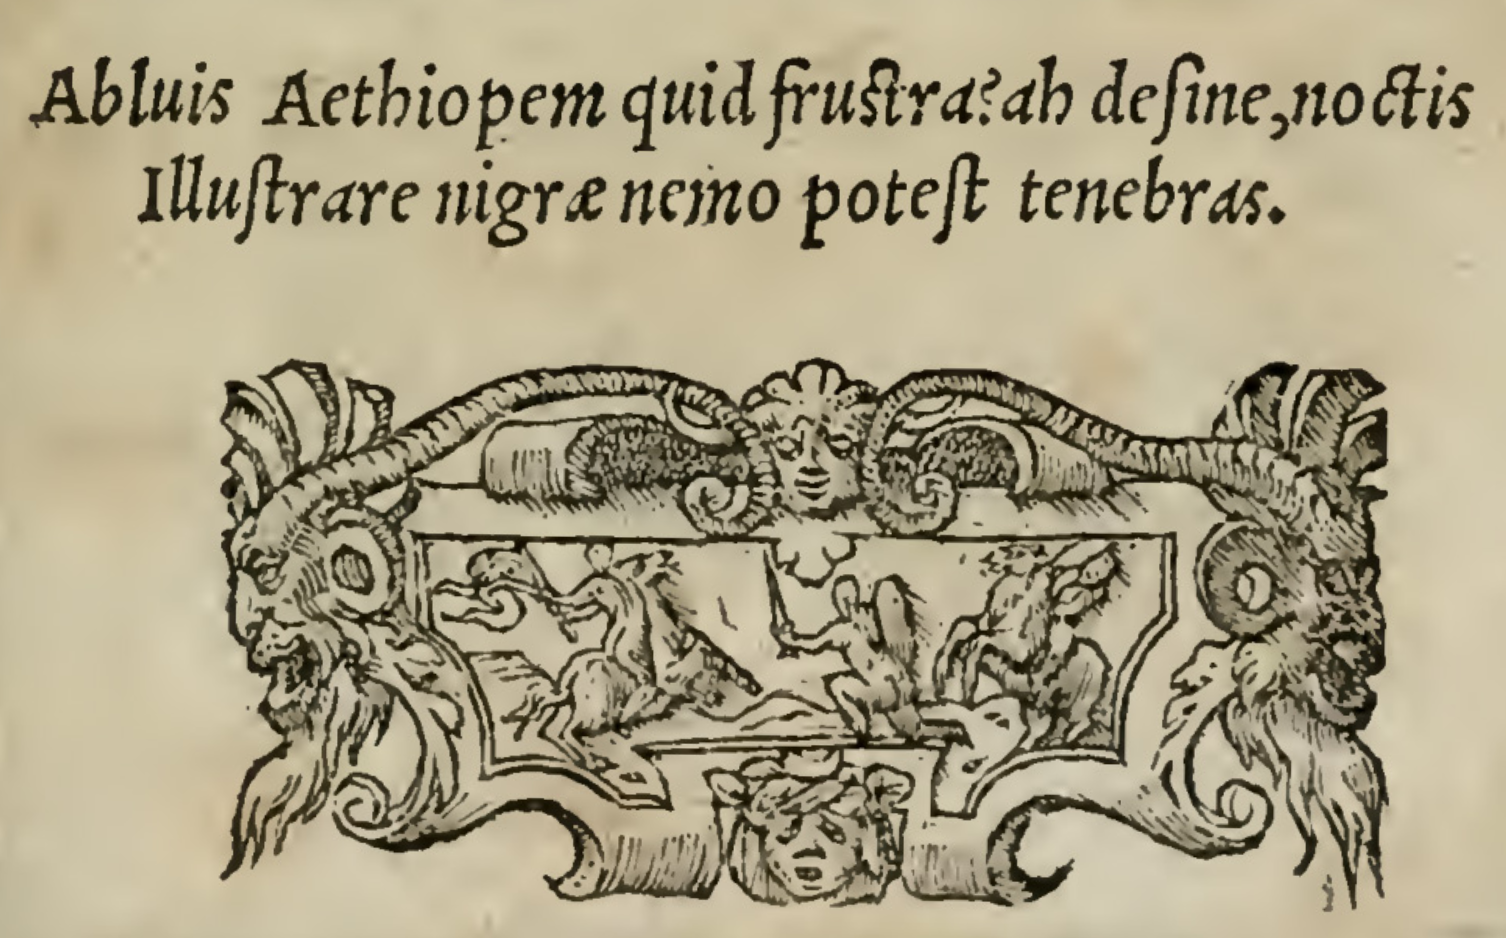 Abluis Aethiopem quid frustra? ah desine, noctis
Illustrare nigræ nemo potest tenebras.